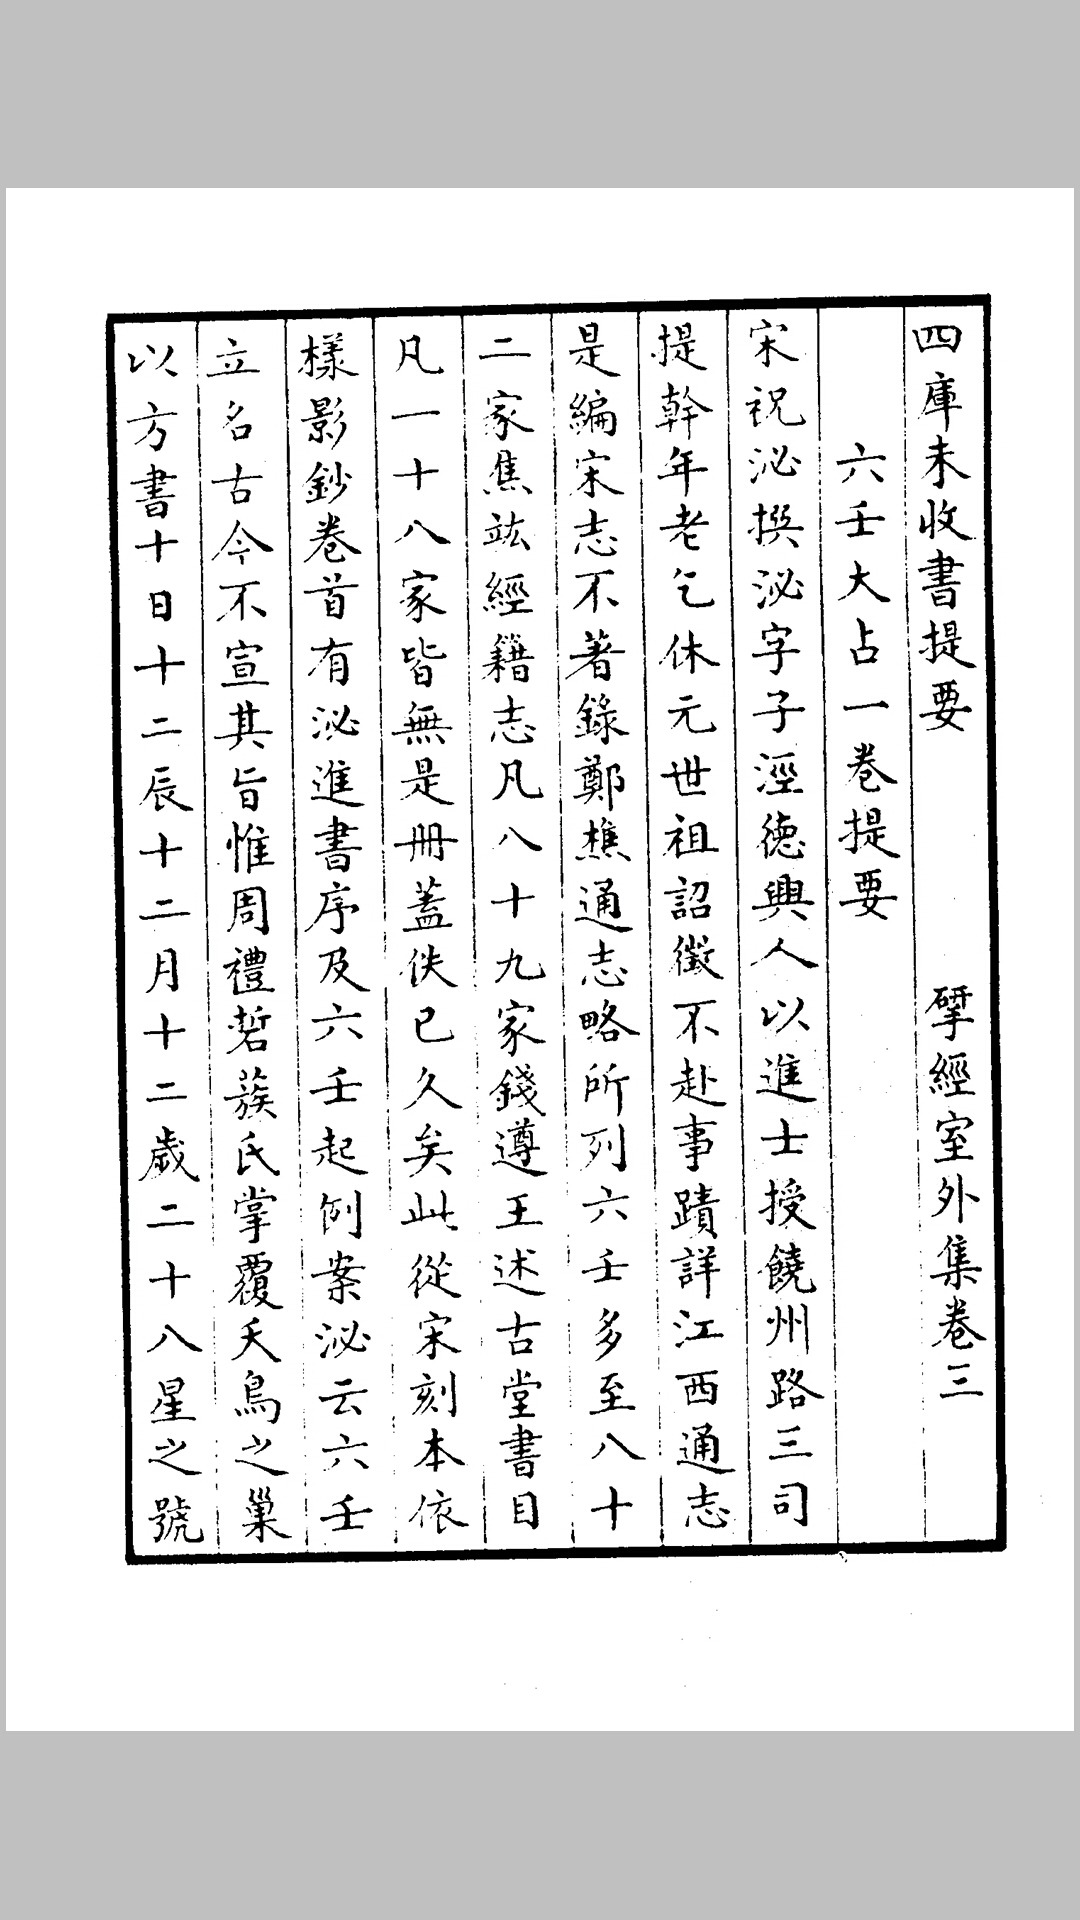 四庫未收書提要　揅經室外集卷三
六壬大占一卷提要
宋祝泌撰泌字子涇德興人以進士授饒州路三司
提幹年老乞休元世祖詔徵不赴事蹟詳江西通志
是編宋志不著錄鄭樵通志略所列六壬多至八十
二家焦竑經籍志凡八十九家錢遵王述古堂書目
凡一十八家皆無是冊蓋佚已久矣此從宋刻本依
樣影鈔卷首有泌進書序及六壬起例案泌云六壬
立名古今不宣其旨惟周禮硩蔟氏掌覆夭鳥之巢
以方書十日十二辰十二月十二歲二十八星之號